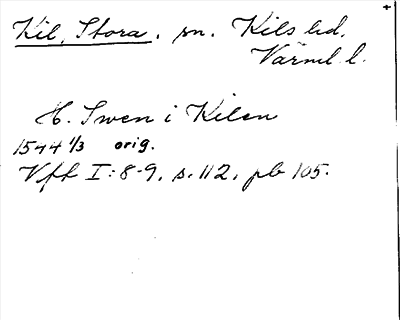 Kil, Stora, sn. Kils hd,
Värml. l.
H. Swen i Kilen
1544 1/3 orig.
Vfk I: 8-9, s. 112, pb 105.